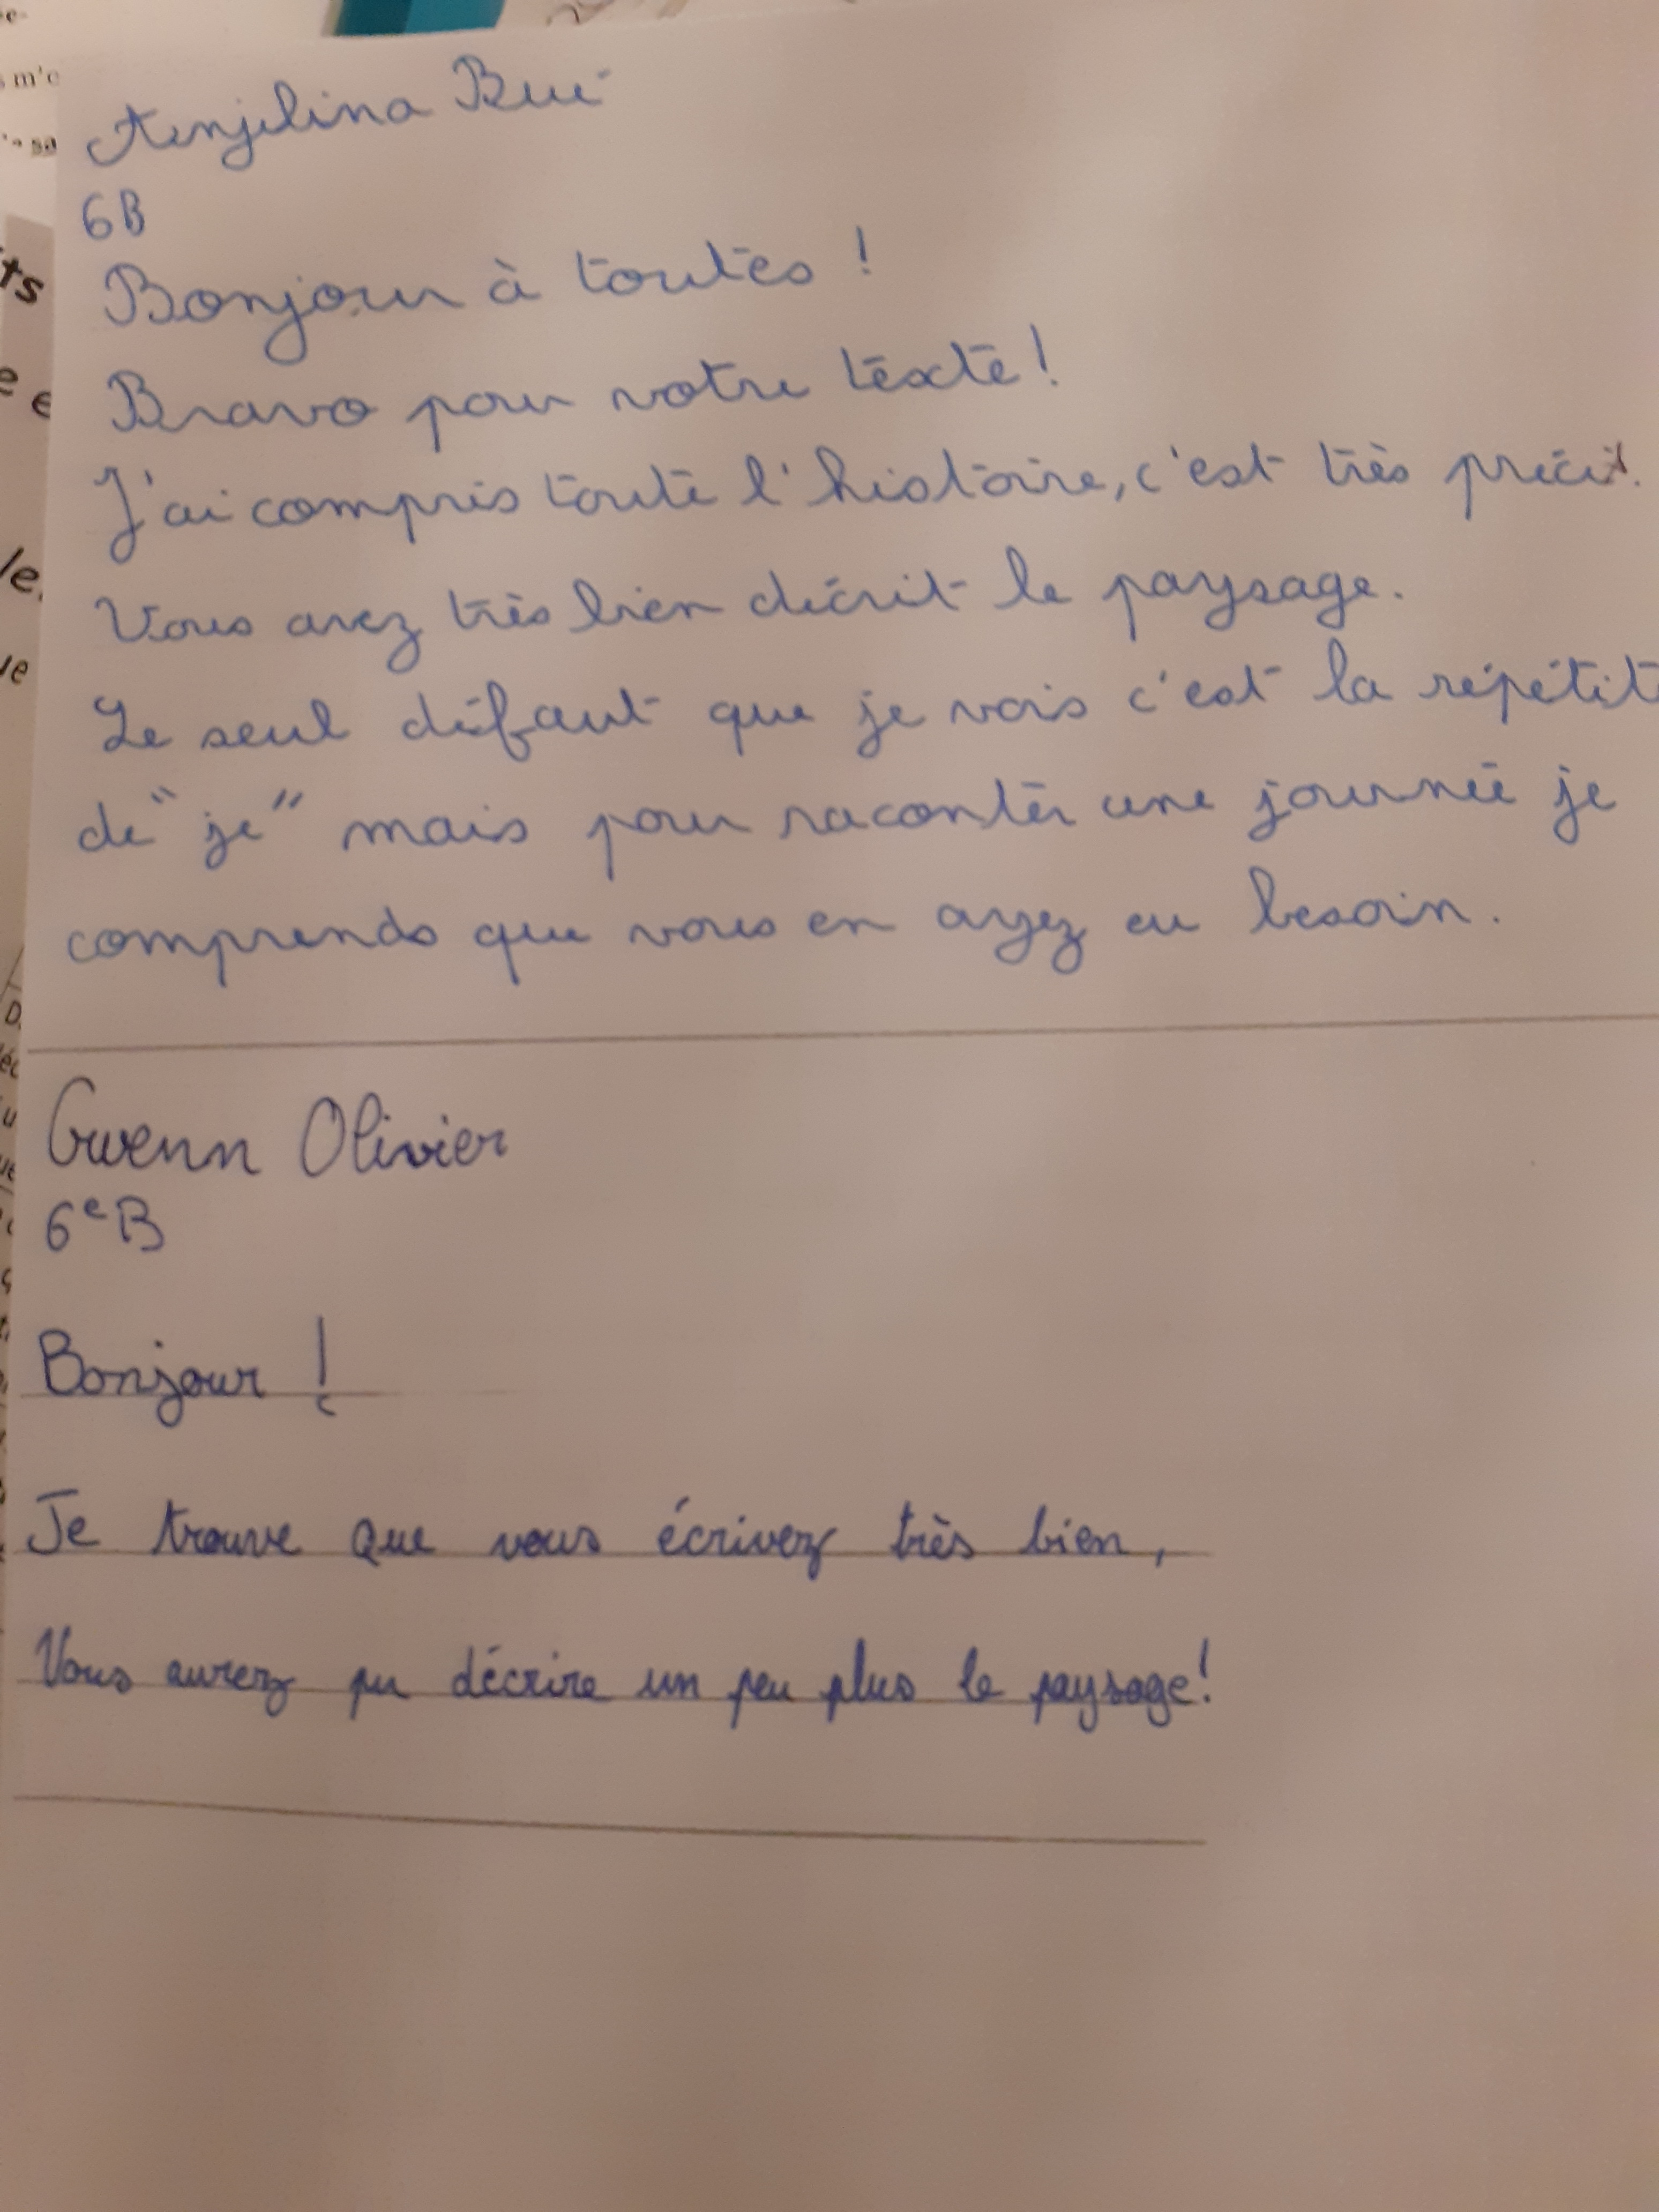 Anjelina Bui
6B
Bonjour à toutes !
Bravo pour votre texte !
J'ai compris toute l'histoire, c'est très précis.
Vous avez très bien décrit le paysage.
Le seul défaut que je vois c'est la répétit
de "je" mais pour raconter une journée je
comprends que vous en ayez eu besoin.
Gwenn Olivier
6e B
Bonjour !
Je trouve que vous écrivez très bien,
Vous aurez pu décrire un peu plus le paysage!